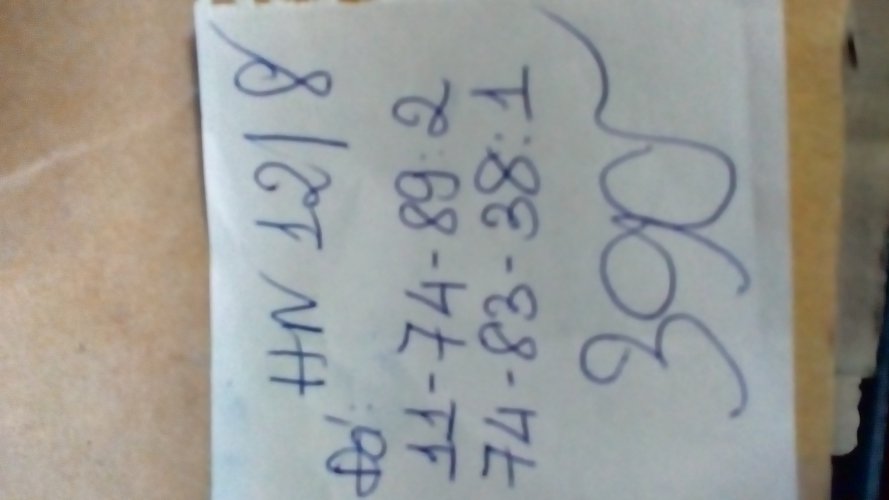 HN 12/8
Đá:
11-74-89:2
74-83-38:1
390